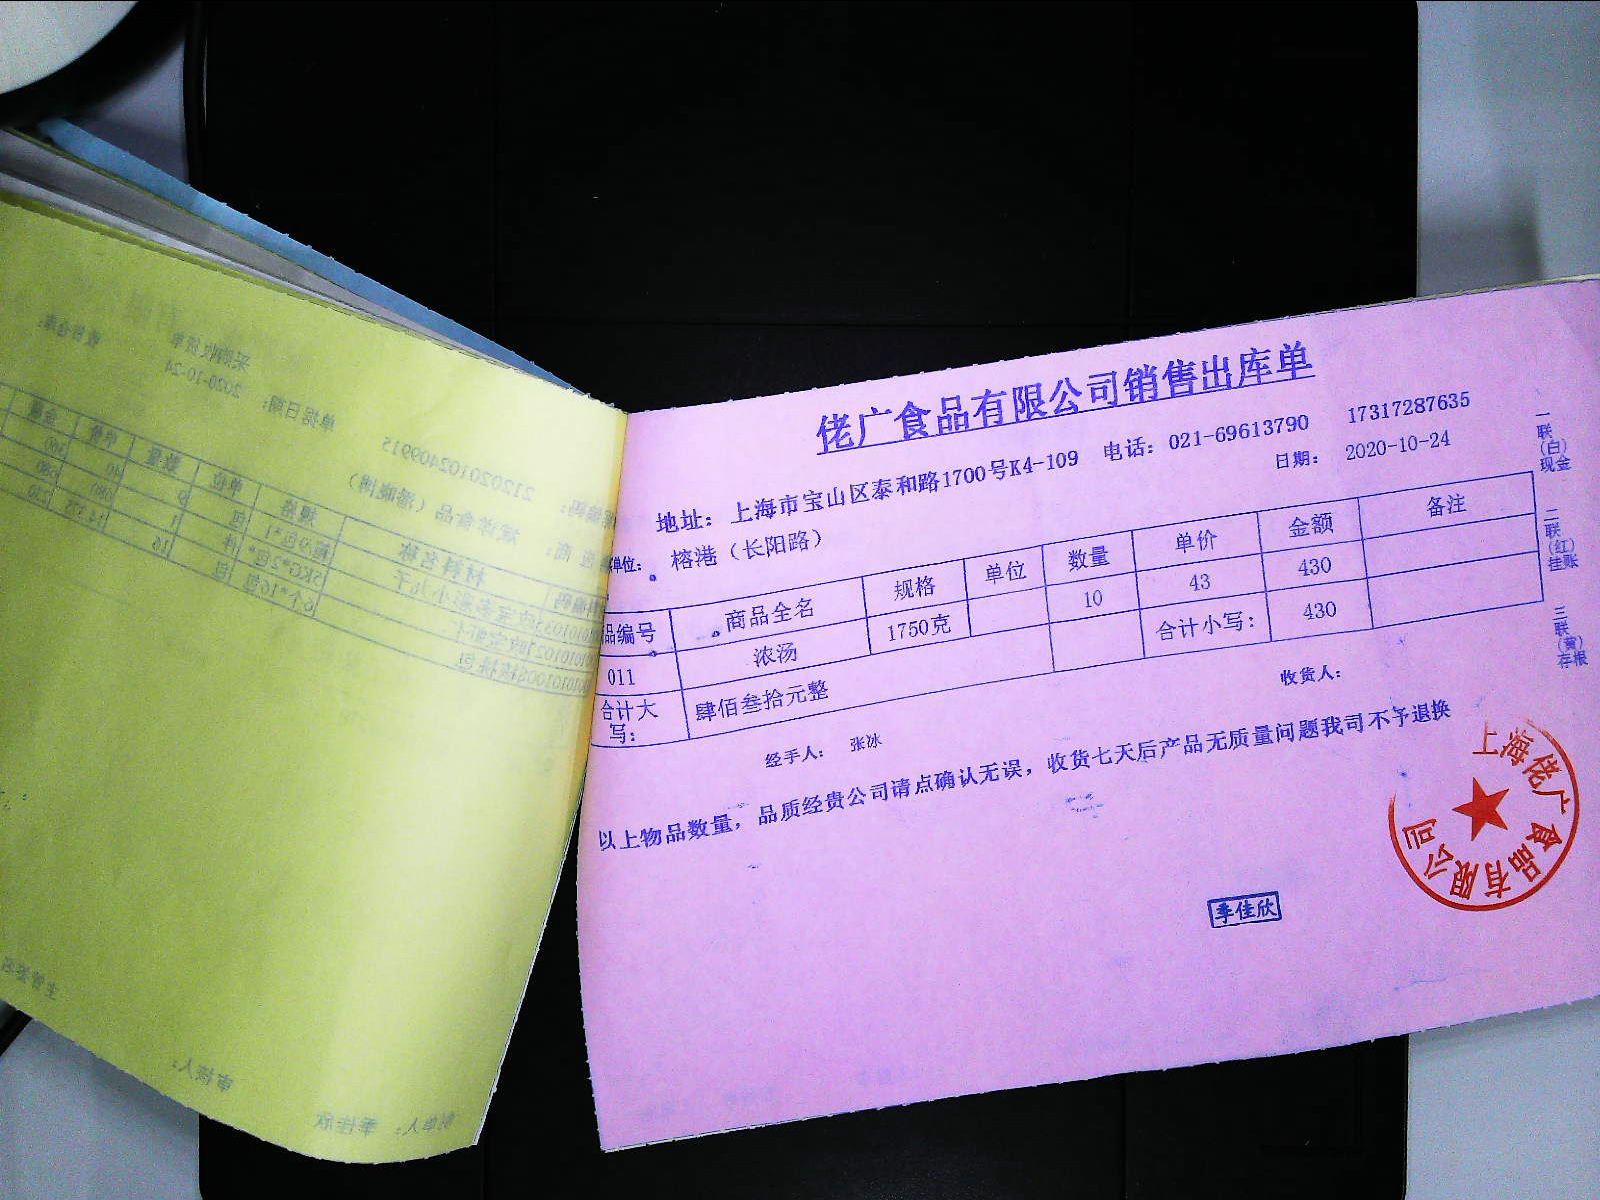 佬广食品有限公司销售出库单
地址：上海市宝山区泰和路1700号K4-109 电话：021-69613790 17317287635
日期： 2020-10-24
单位： 榕港（长阳路）
品编号 商品全名 规格 单位 数量 单价 金额 备注
011 浓汤 1750克 10 43 430
合计大写： 肆佰叁拾元整 合计小写： 430
经手人： 张冰 收货人：
以上物品数量，品质经贵公司请点确认无误，收货七天后产品无质量问题我司不予退换
一联(白)现金
二联(红)挂账
三联(黄)存根
上海佬广食品有限公司
季佳欣
采购收货单
收货仓库：
单据日期：2020-10-24
212020102409915
材料名称 规格 单位 数量 单价 金额
审核人：
制单人：季佳欣